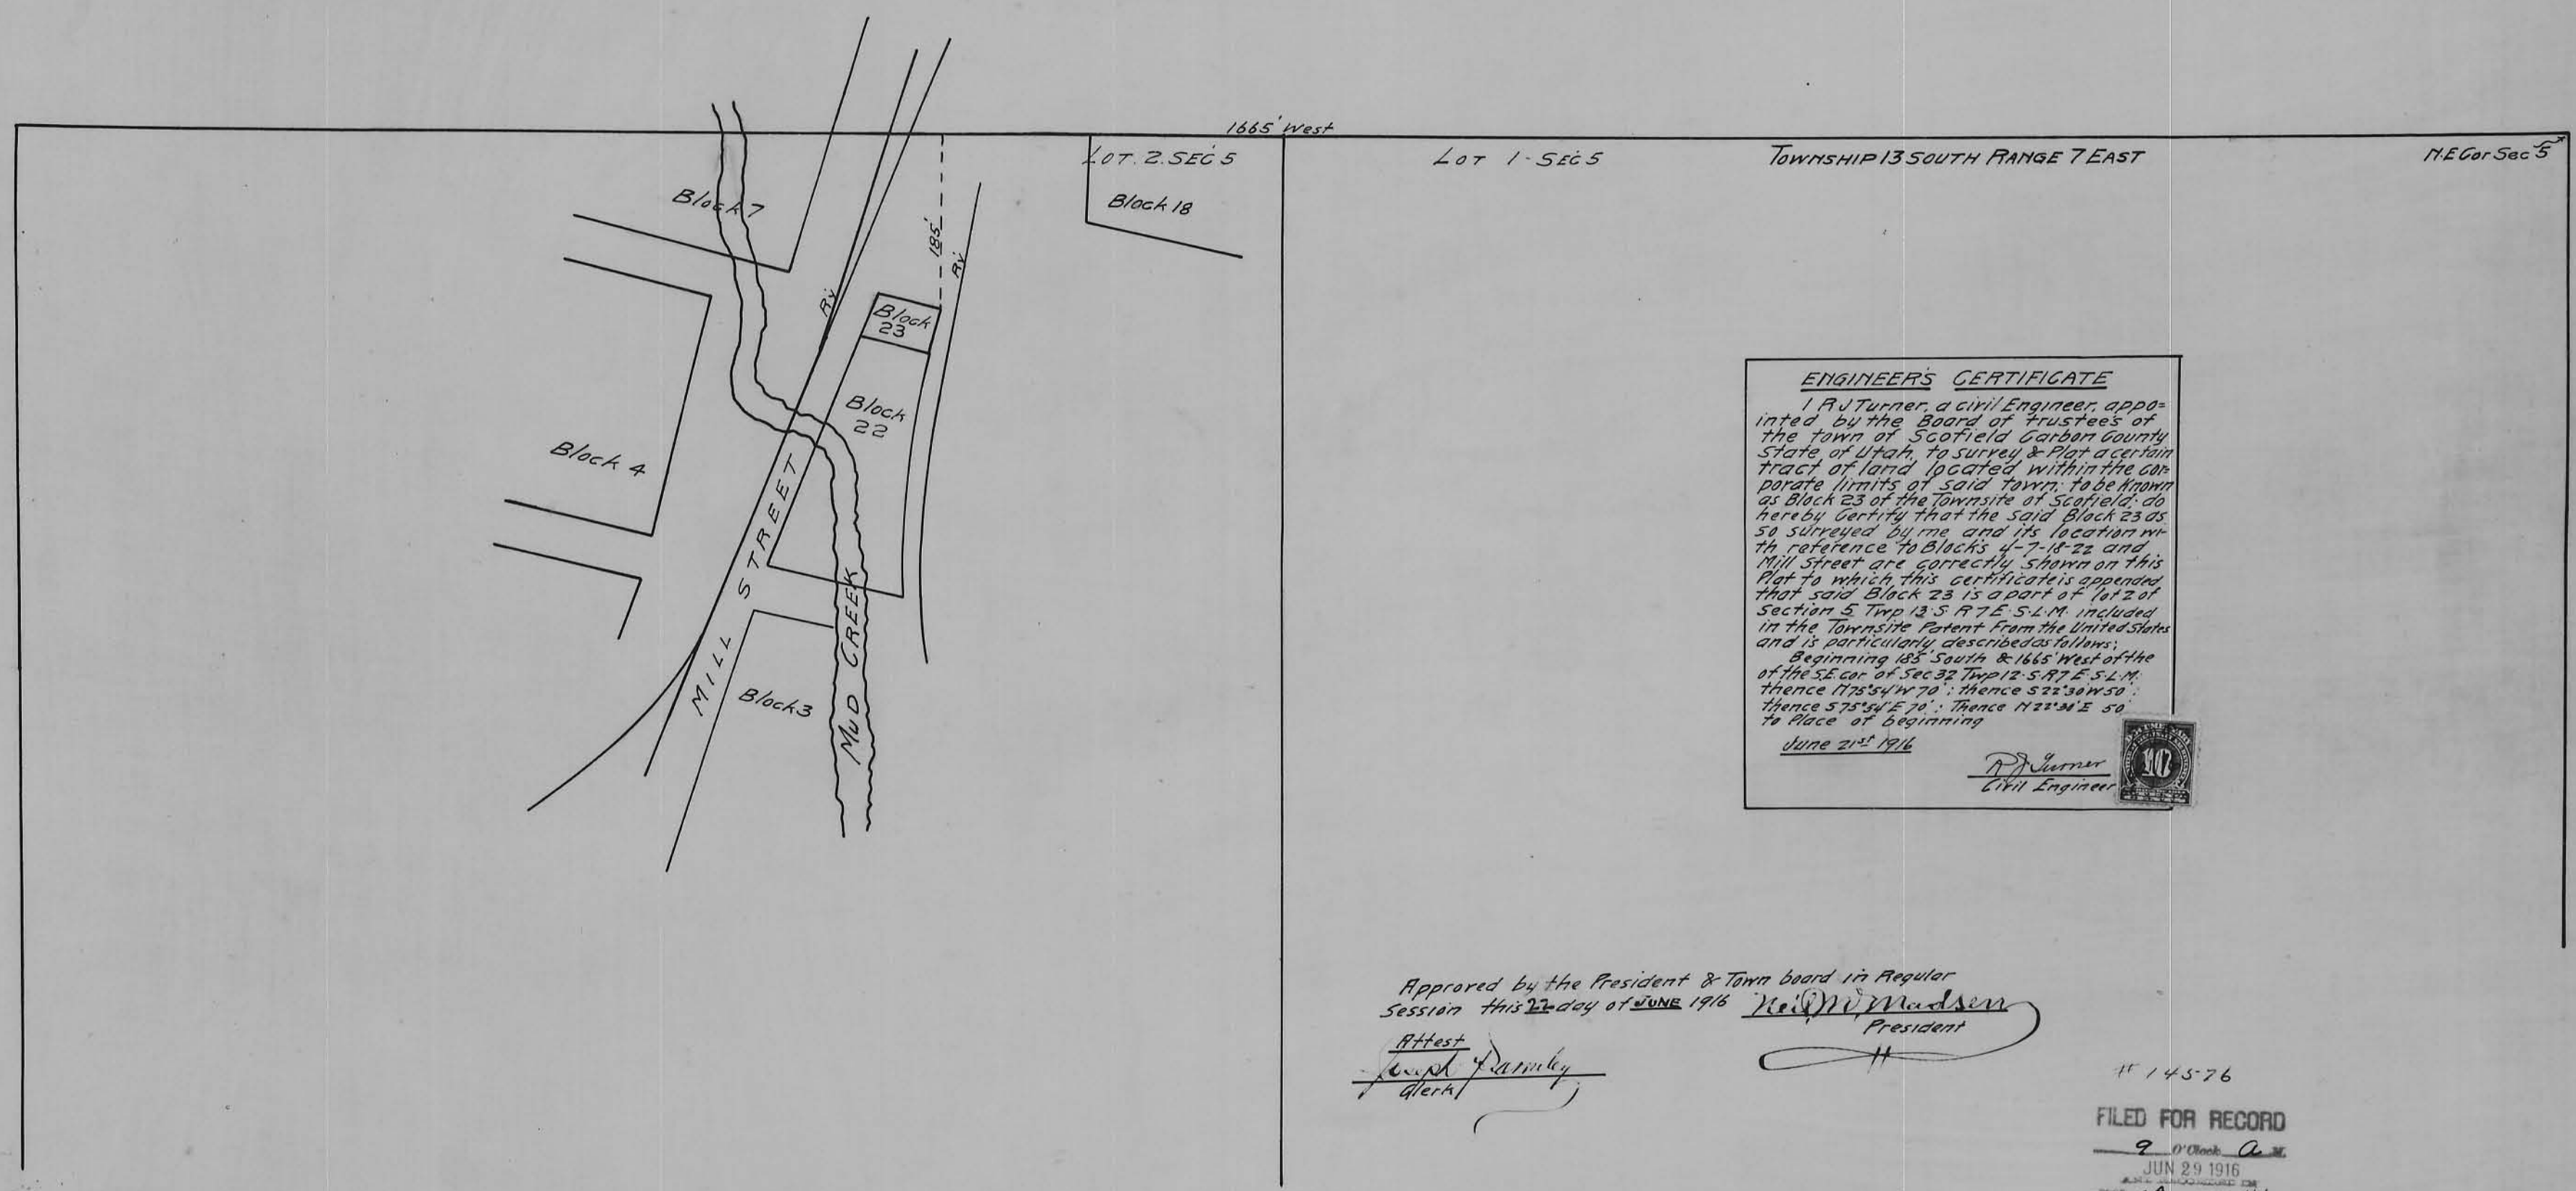 1665' West
LOT. 2. SEC 5
LOT 1 - SEC 5
TOWNSHIP 13 SOUTH RANGE 7 EAST
N.E Cor Sec 5
Block 7
Block 18
185'
Ry
Ry
Block
23
Block
22
Block 4
MILL STREET
MUD CREEK
Block 3
ENGINEER'S CERTIFICATE
I R J Turner, a civil Engineer, appo=
inted by the Board of trustee's of
the town of Scofield Carbon County
State of Utah, to survey & Plat a certain
tract of land located within the cor-
porate limits of said town; to be Known
as Block 23 of the Townsite of Scofield; do
hereby Certify that the said Block 23 as
so surveyed by me and its location wi-
th reference to Block's 4-7-18-22 and
Mill Street are correctly shown on this
Plat to which this certificate is appended
that said Block 23 is a part of lot 2 of
Section 5 Twp 13 S R 7 E S.L.M. included
in the Townsite Patent From the United States
and is particularly described as follows;
Beginning 185' South & 1665' West of the
of the S.E. cor of Sec 32 Twp 12 S R 7 E S.L.M.
thence N 75°54' W 70'; thence S 22°30' W 50';
thence S 75°54' E 70'; Thence N 22°30' E 50'
to Place of beginning
June 21st 1916
R J Turner
Civil Engineer
10
Approved by the President & Town board in Regular
Session this 22 day of JUNE 1916 Neil M. Madsen
President
Attest
Joseph Parmley
Clerk
# 14576
FILED FOR RECORD
9 O'Clock A M.
JUN 29 1916